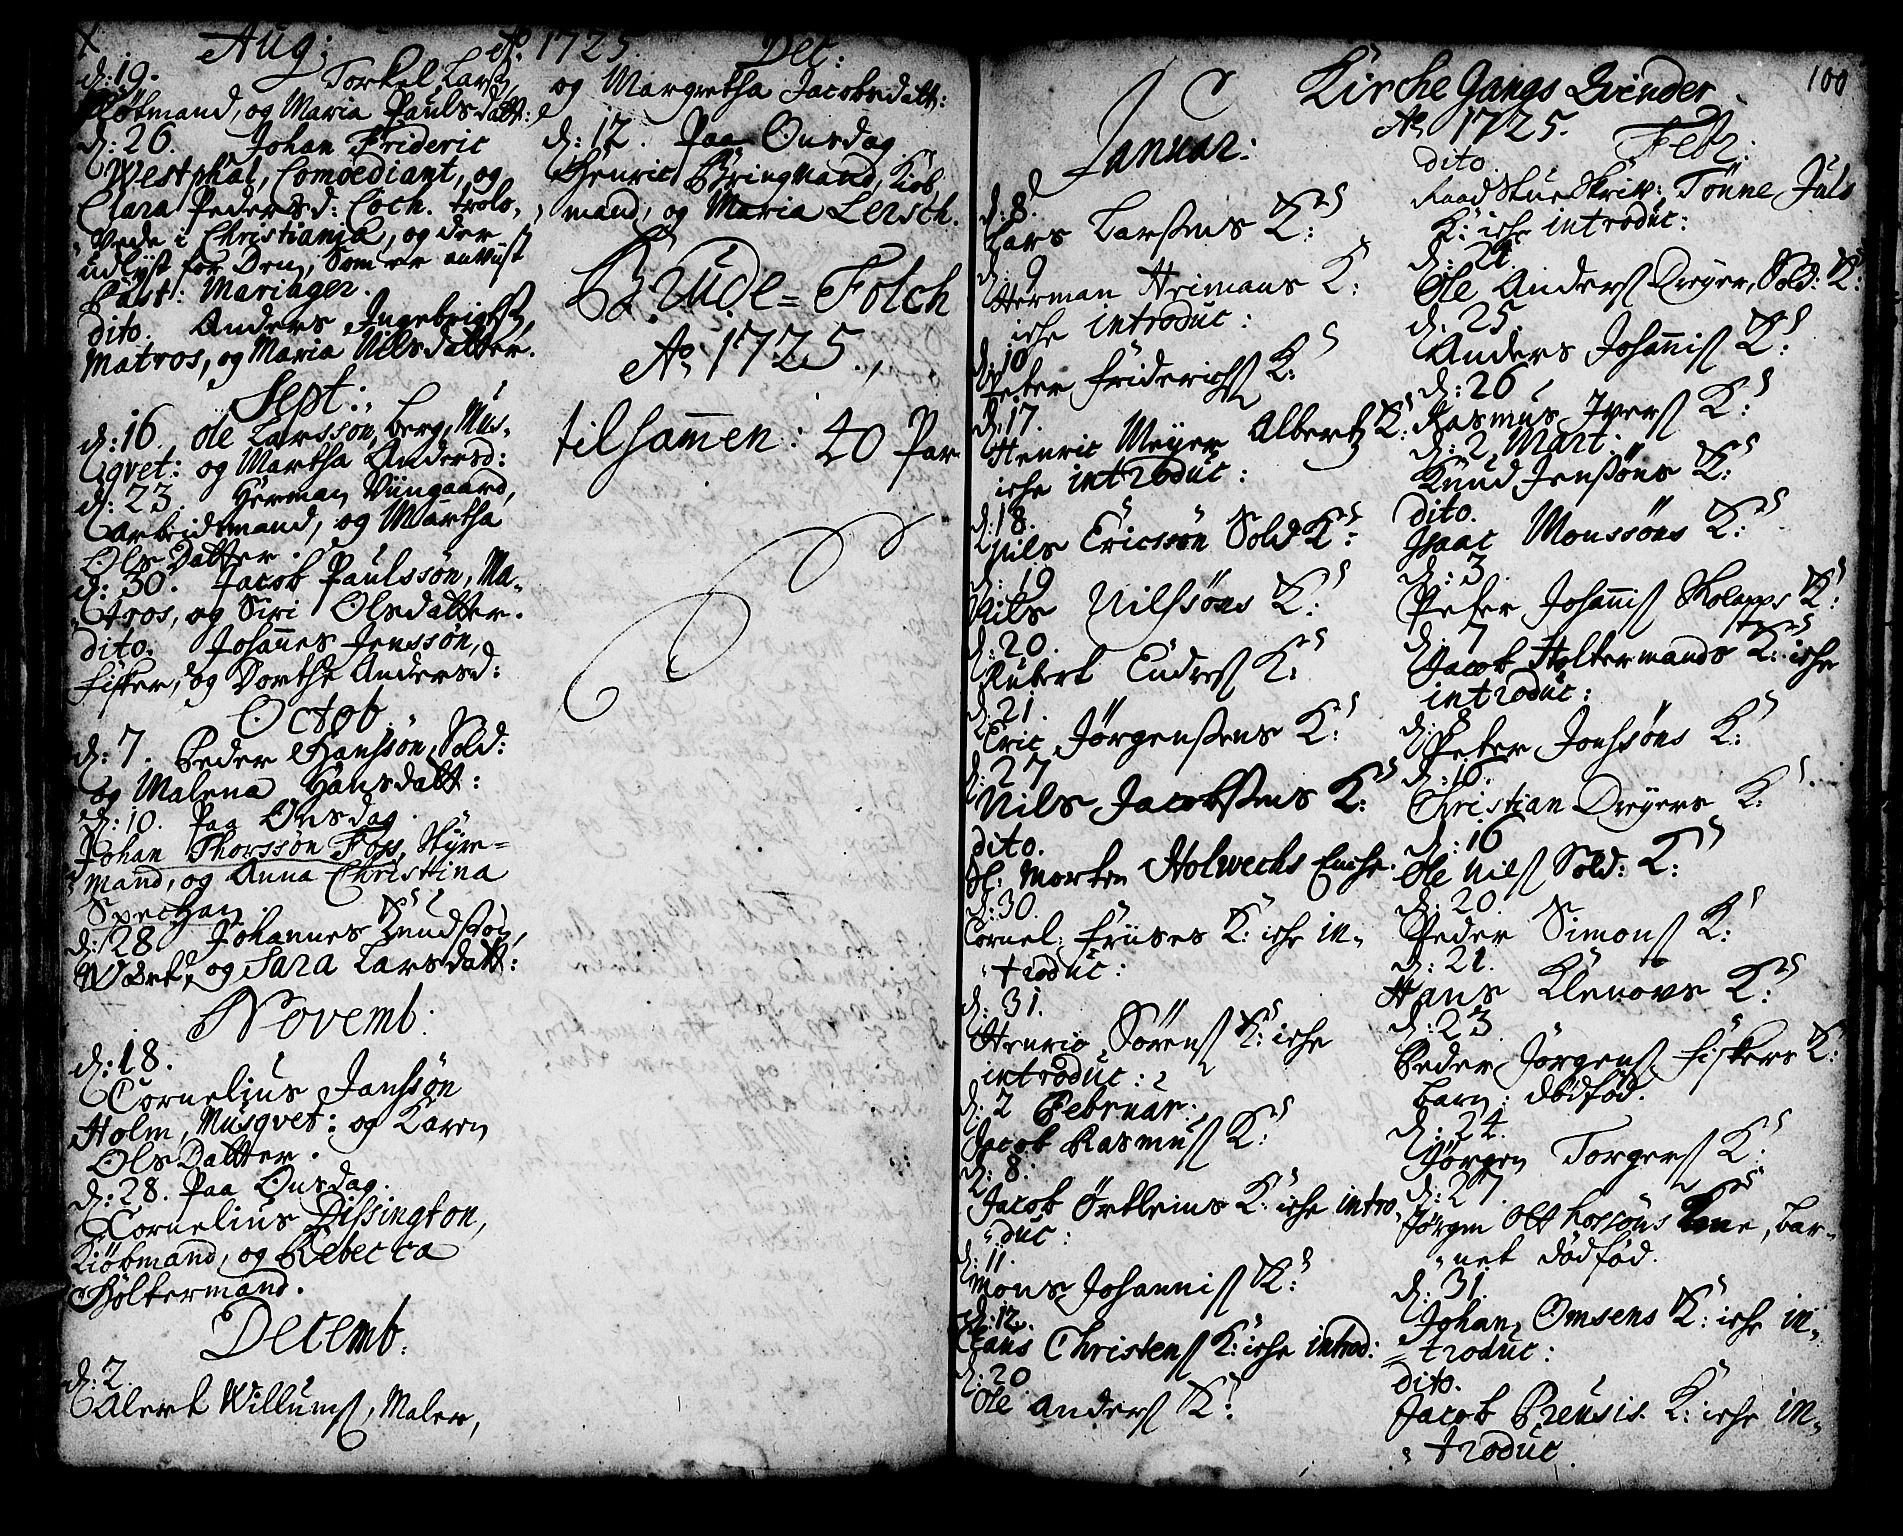 Aug: Aº 1725. Dec:
d: 19. Torkel Lars,
Kiøbmand, og Maria Paulsdatt:
d: 26. Johan Frideric
Westphal, Comoediant, og
Clara Pedersd: Coch. trolo,
vede i Christiania, og der
udlyst for Dem, som er anvist
Past: Mariager.
dito. Anders Ingebrigts,
Matros, og Maria Nilsdatter.
Sept:
d: 16. Ole Larssøn Berg, Mus,
qvet: og Martha Andersd:
d: 23. Herman Viingaard,
arbeidsmand, og Martha
Olsdatter.
d: 30. Jacob Paulssøn, Ma,
tros, og Siri Olsdatter.
dito. Johannes Jenssøn,
fisker, og Dorthe Andersd:
Octob.
d: 7. Peder Hanssøn, Sold:
og Malena Hansdatt:
d: 10. Paa Onsdag.
Johan Thorssøn Foss, Styre=
mand, og Anna Christina
Spechan.
d: 28 Johannes Knudssøn,
og Sara Larsdatt:
Novemb:
d: 18.
Cornelius Janssøn
Holm, Musqvet: og Karen
Olsdatter.
d: 28. Paa Onsdag.
Cornelius Dissington,
Kiøbmand, og Rebecca
Holtermand.
Decemb.
d: 2.
Alert Willums, Maler,
og Margretha Jacobsdatt:
d: 12. Paa Onsdag
Henric Bringmand, Kiøb,
mand, og Maria Lersch.
Brude=Folch
Aº 1725.,
tilsammen: 40 Par
100
Kirche Gangs Qvinder
Aº 1725.
Januar:
d: 8.
Lars Larsens K:
d: 9
Herman Heimans K:
iche introduc:
d: 10
Peter Friderichs K:
d: 17.
Henric Meyer Alberts K:
iche introduc:
d: 18.
Nils Ericssøn Sold K:
d: 19
Nils Nilssøns K:
d: 20.
Rubert Endres K:
d: 21.
Eric Jørgensens K:
d: 27
Nils Jacobsens K:
dito.
Sl: Morten Holwechs Enche.
d: 30.
Cornel: Friises K: iche in,
troduc:
d: 31.
Henric Sørens K: iche
introduc:
d: 2 Februar:
Jacob Rasmus K:
d: 8:
Jacob Ørtleins K: iche intro,
duc:
d: 11.
Mons Johannis K:
d: 12.
Claus Christens K: iche introd:
d: 20
Ole Anders K:
Febr:
dito.
Raadstueskriv: Tønne Juls
K: iche introduc:
d: 24.
Ole Anders Dreyer, Sold: K:
d: 25.
Anders Johannis K:
d: 26
Rasmus Ivers K:
d: 2 Mart:
Knud Jenssøns K:
dito.
Isaac Monssøns K:
d: 3.
Peter Johannis Skolapps K:
d: 7
Jacob Holtermands K: iche
introduc:
d: 8.
Peter Jonssøns K:
d: 16.
Christian Dreyers K:
d: 16
Ole Nils Sold: K:
d: 20.
Peder Simons K:
d: 21.
Hans Klenovs K:
d: 23
Peder Jørgens fiskers K:
barn: dødfød.
d: 24.
Jørgen Torgers K:
d: 27.
Jørgen Otthossøns Kone, bar,
net dødfød.
d: 31.
Johan Omsens K: iche in,
troduc:
dito.
Jacob Preusis. K: iche in,
troduc.